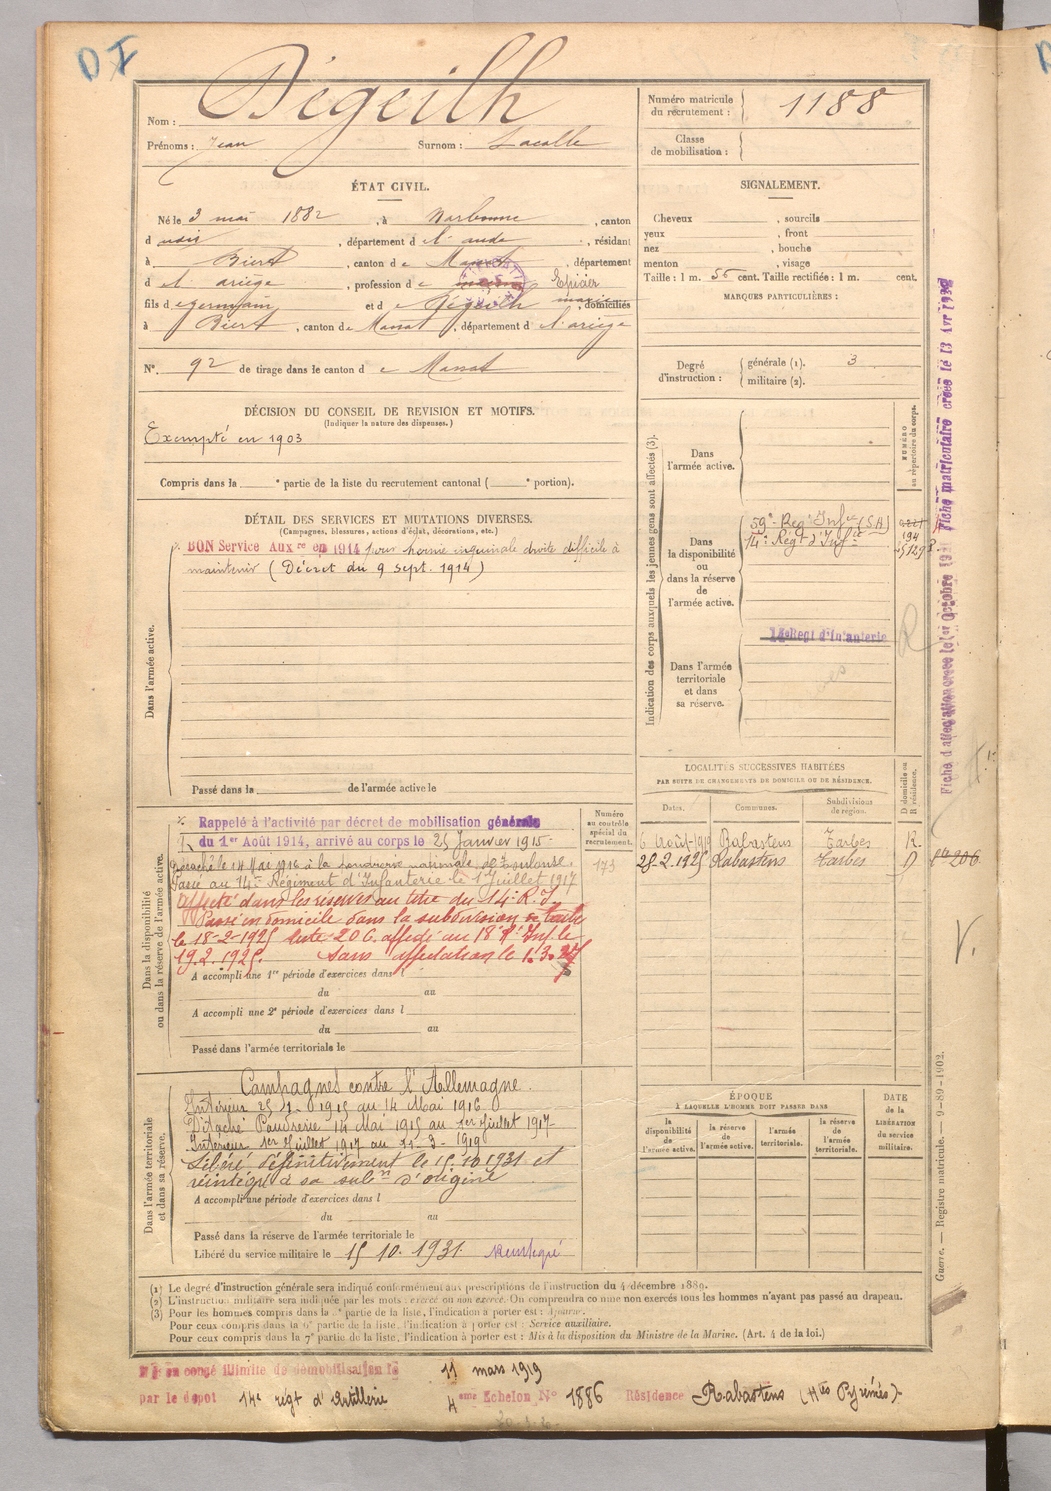 DI
Nom : Dégeilh
Prénoms : Jean Surnom : Lacalle
Numéro matricule du recrutement : 1188
Classe de mobilisation :
ÉTAT CIVIL.
Né le 3 mai 1882, à Narbonne, canton
d udis, département de l'aude, résidant
à Biert, canton de Massat, département
d l'ariège, profession de Epicier
fils de germain et de Dégeilh marie domiciliés
à Biert, canton de Massat, département d l'ariège
N°. 92 de tirage dans le canton de Massat
SIGNALEMENT.
Cheveux , sourcils
yeux , front
nez , bouche
menton , visage
Taille : 1 m. 56 cent. Taille rectifiée : 1 m. cent.
MARQUES PARTICULIÈRES :
Degré d'instruction : générale (1). 3
militaire (2).
DÉCISION DU CONSEIL DE REVISION ET MOTIFS.
(Indiquer la nature des dispenses.)
Exempté en 1903
Compris dans la e partie de la liste du recrutement cantonal ( e portion).
DÉTAIL DES SERVICES ET MUTATIONS DIVERSES.
(Campagnes, blessures, actions d'éclat, décorations, etc.)
BON Service Aux re en 1914 pour hernie inguinale droite difficile à
maintenir (Décret du 9 sept. 1914)
Dans l'armée active.
Passé dans la de l'armée active le
Indication des corps auxquels les jeunes gens sont affectés (3).
NUMÉRO au répertoire du corps.
Dans l'armée active.
Dans la disponibilité ou dans la réserve de l'armée active.
59e Reg t Inf ie (S.A)
14e Regt d'Inf ie
194
Dans l'armée territoriale et dans sa réserve.
Regt d'Infanterie
Fiche d'affectation créée le 1er Octobre 1931 Fiche matriculaire créée le 13 Avr 193
LOCALITÉS SUCCESSIVES HABITÉES
PAR SUITE DE CHANGEMENTS DE DOMICILE OU DE RÉSIDENCE.
Dates. Communes. Subdivisions de région. D domicile ou R résidence.
6 Août 1919 Rabastens Tarbes R.
25-2-1925 Rabastens Tarbes D
206
Numéro au contrôle spécial du recrutement.
173
Dans la disponibilité ou dans la réserve de l'armée active.
Rappelé à l'activité par décret de mobilisation générale
du 1er Août 1914, arrivé au corps le 25 Janvier 1915
Détaché le 14 Mai 1916 à la poudrerie nationale de Toulouse.
Passé au 14e Régiment d'Infanterie le 1er Juillet 1917
Affecté dans les réserves au titre du 14e R.I.
Passé en domicile dans la subdivision de Tarbes
le 18-2-1925 liste 206. affecté au 18e R. Inf. le
19.2.1925. Sans affectation le 1.3.27
A accompli une 1re période d'exercices dans
du au
A accompli une 2e période d'exercices dans l
du au
Passé dans l'armée territoriale le
Dans l'armée territoriale et dans sa réserve.
Campagnes contre l'Allemagne.
Intérieur 25-1-1915 au 14 Mai 1916
Détaché Poudrerie 14 Mai 1915 au 1er Juillet 1917
Intérieur 1er Juillet 1917 au 11-3-1919
Libéré définitivement le 15.10.1931 et
réintégré à sa sub on d'origine
A accompli une période d'exercices dans l
du au
Passé dans la réserve de l'armée territoriale le
Libéré du service militaire le 15.10.1931 réintégré
ÉPOQUE
À LAQUELLE L'HOMME DOIT PASSER DANS
la disponibilité de l'armée active. la réserve de l'armée active. l'armée territoriale. la réserve de l'armée territoriale.
DATE de la LIBÉRATION du service militaire.
Guerre. — Registre matricule. — 9-89-1902.
(1) Le degré d'instruction générale sera indiqué conformément aux prescriptions de l'instruction du 4 décembre 1889.
(2) L'instruction militaire sera indiquée par les mots : exercé ou non exercé. On comprendra comme non exercés tous les hommes n'ayant pas passé au drapeau.
(3) Pour les hommes compris dans la e partie de la liste, l'indication à porter est : Ajourné.
Pour ceux compris dans la 6e partie de la liste, l'indication à porter est : Service auxiliaire.
Pour ceux compris dans la 7e partie de la liste, l'indication à porter est : Mis à la disposition du Ministre de la Marine. (Art. 4 de la loi.)
Mis en congé illimité de démobilisation le 11 mars 1919
par le dépôt 14e regt d'Artillerie 4eme Echelon N° 1886 Résidence Rabastens (Htes Pyrénées)